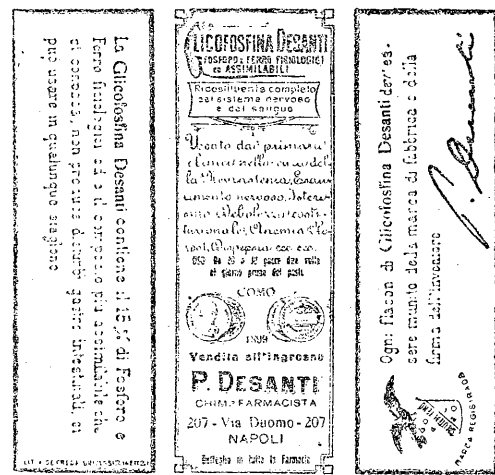 La Glicofosfina Desanti contiene il 15% di Fosforo e
Ferro fisiologici ed è il composto più assimilabile che
si conosca, non procura disturbi gastro intestinali, si
può usare in qualunque stagione
GLICOFOSFINA DESANTI
FOSFORO E FERRO FISIOLOGICI
ED ASSIMILABILI
Ricostituente completo
del sistema nervoso
e del sangue
Usato dai primari
clinici nella cura del
la Nevrastenia, Esauri
mento nervoso,
Debolezza costi
tuzionale, Anemia, Clo
rosi, Dispepsia ecc. ecc.
USO Da 10 a 12 gocce due volte
al giorno prima dei pasti
COMO
1899
Vendita all'ingrosso
P. DESANTI
CHIM. FARMACISTA
207 - Via Duomo - 207
NAPOLI
Dettaglio in tutte le Farmacie
Ogni flacon di Glicofosfina Desanti dev'es-
sere munito della marca di fabbrica e della
firma dell'inventore
P. Desanti
MARCA REGISTRATA